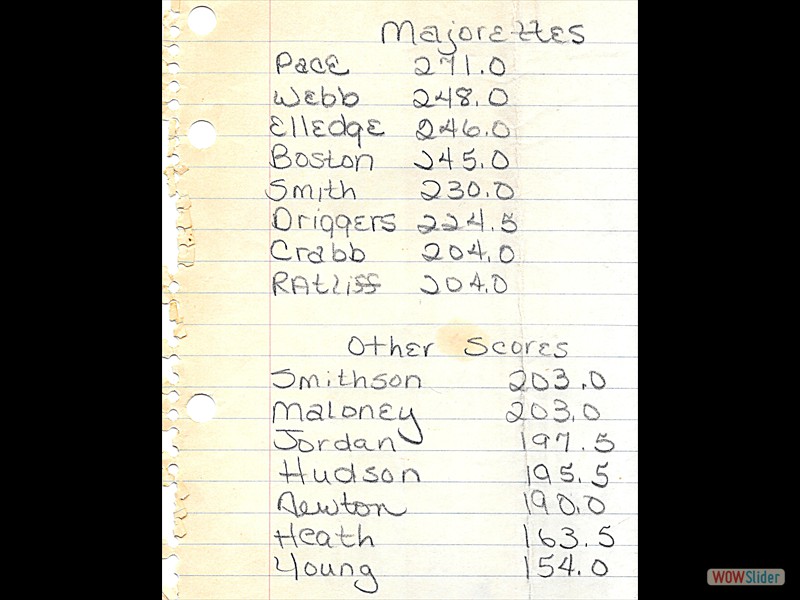 Majorettes
Pace 271.0
Webb 248.0
Elledge 246.0
Boston 245.0
Smith 230.0
Driggers 224.5
Crabb 204.0
RAtliff 204.0
Other Scores
Smithson 203.0
Maloney 203.0
Jordan 197.5
Hudson 195.5
Newton 190.0
Heath 163.5
Young 154.0
WOWSlider